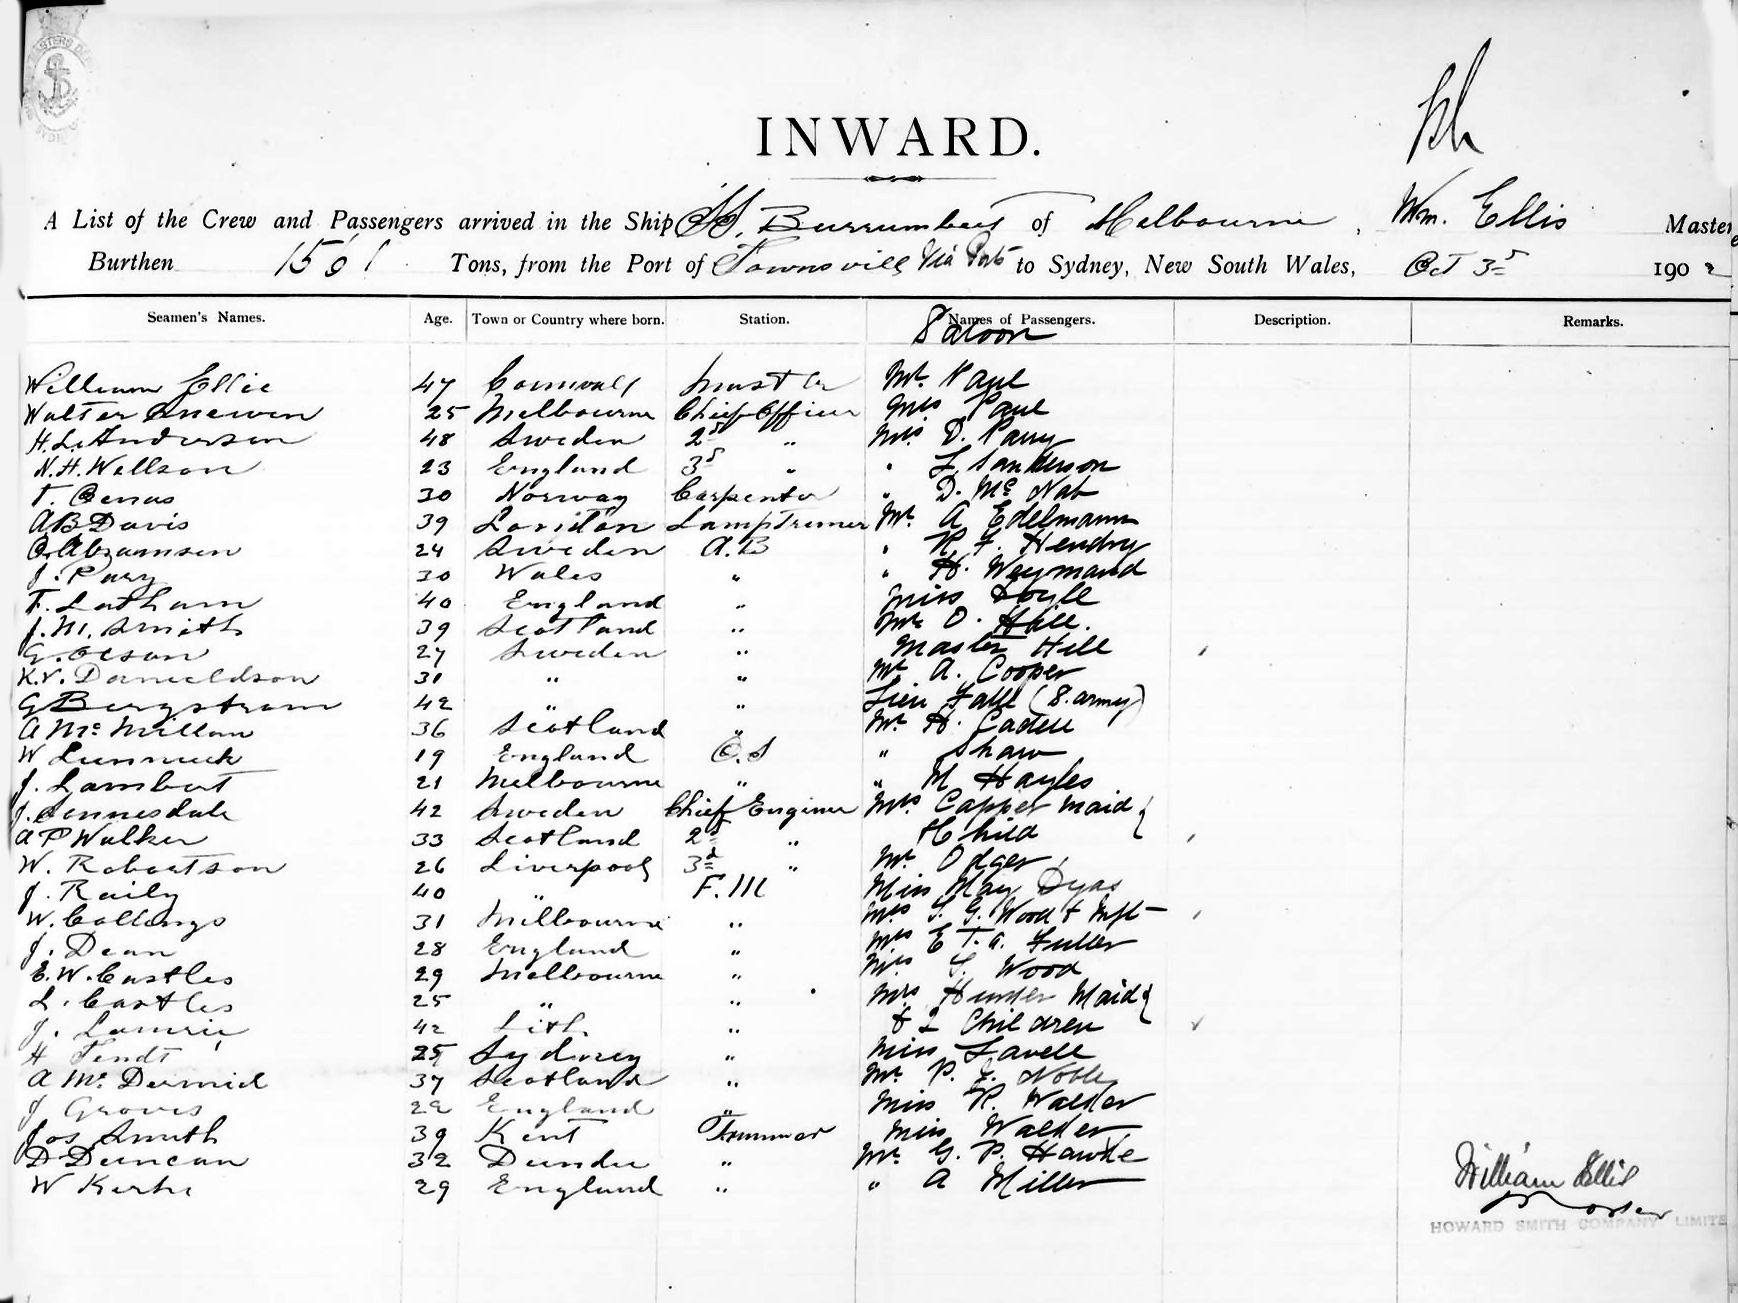 INWARD.
A List of the Crew and Passengers arrived in the Ship SS. Burrumbeet of Melbourne, Wm. Ellis Master
Burthen 1501 Tons, from the Port of Townsville Via Ports to Sydney, New South Wales, Oct 3 1902
Seamen's Names. Age. Town or Country where born. Station. Names of Passengers. Description. Remarks.
Saloon
William Ellis 47 Cornwall Master Mr. Paul
Walter 25 Melbourne Chief Officer Mrs Paul
H. L. Anderson 48 Sweden 2nd " Miss D. Parry
N. H. Wellson 23 England 3rd " " L Sanderson
T. 30 Norway Carpenter " D. Mc Nab
A B Davis 39 London Lamp Trimmer Mr. A Edelmann
O. Abramsen 24 Sweden A.B " R. F. Hendry
J. Pary 30 Wales " " H. Weymand
F. Latham 40 England " Miss Loyll
J. M. Smith 39 Scotland " Mr O. Hill.
G. Olson 27 Sweden " Master Hill
K. V. Danieldson 31 " " Mr A. Cooper
G Bergstrom 42 " " Lieu Fall (S. army)
A Mc Millan 36 Scotland " Mr H. Cadell
W 19 England O.S " Shaw
J. Lambert 21 Melbourne " " M Hayles
J. 42 Sweden Chief Engineer Mrs Capper Maid
A P Walker 33 Scotland 2nd " & Child
W. Robertson 26 Liverpool 3rd " Mr. Odger
J. Raily 40 " F.M Miss May Dyas
W. Collings 31 Melbourne " Mrs S. G. Wood & Inft
J. Dean 28 England " Mrs E T. A. Fuller
E. W. Castles 29 Melbourne " Miss G. Wood
L. Castles 25 " " Mrs Hunter Maid
J. Lawrie 42 Leith " & 2 Children
H Tendt 25 Sydney " Miss Lavell
A Mc Dermid 37 Scotland " Mr. P. J. Noble
J Groves 22 England " Miss R. Walder
Jos Smith 39 Kent Trimmer Miss Walder
D Duncan 32 Dundee " Mr. G. P. Hawke
W Kerke 29 England " " A Miller
William Ellis
Master
HOWARD SMITH COMPANY LIMITE